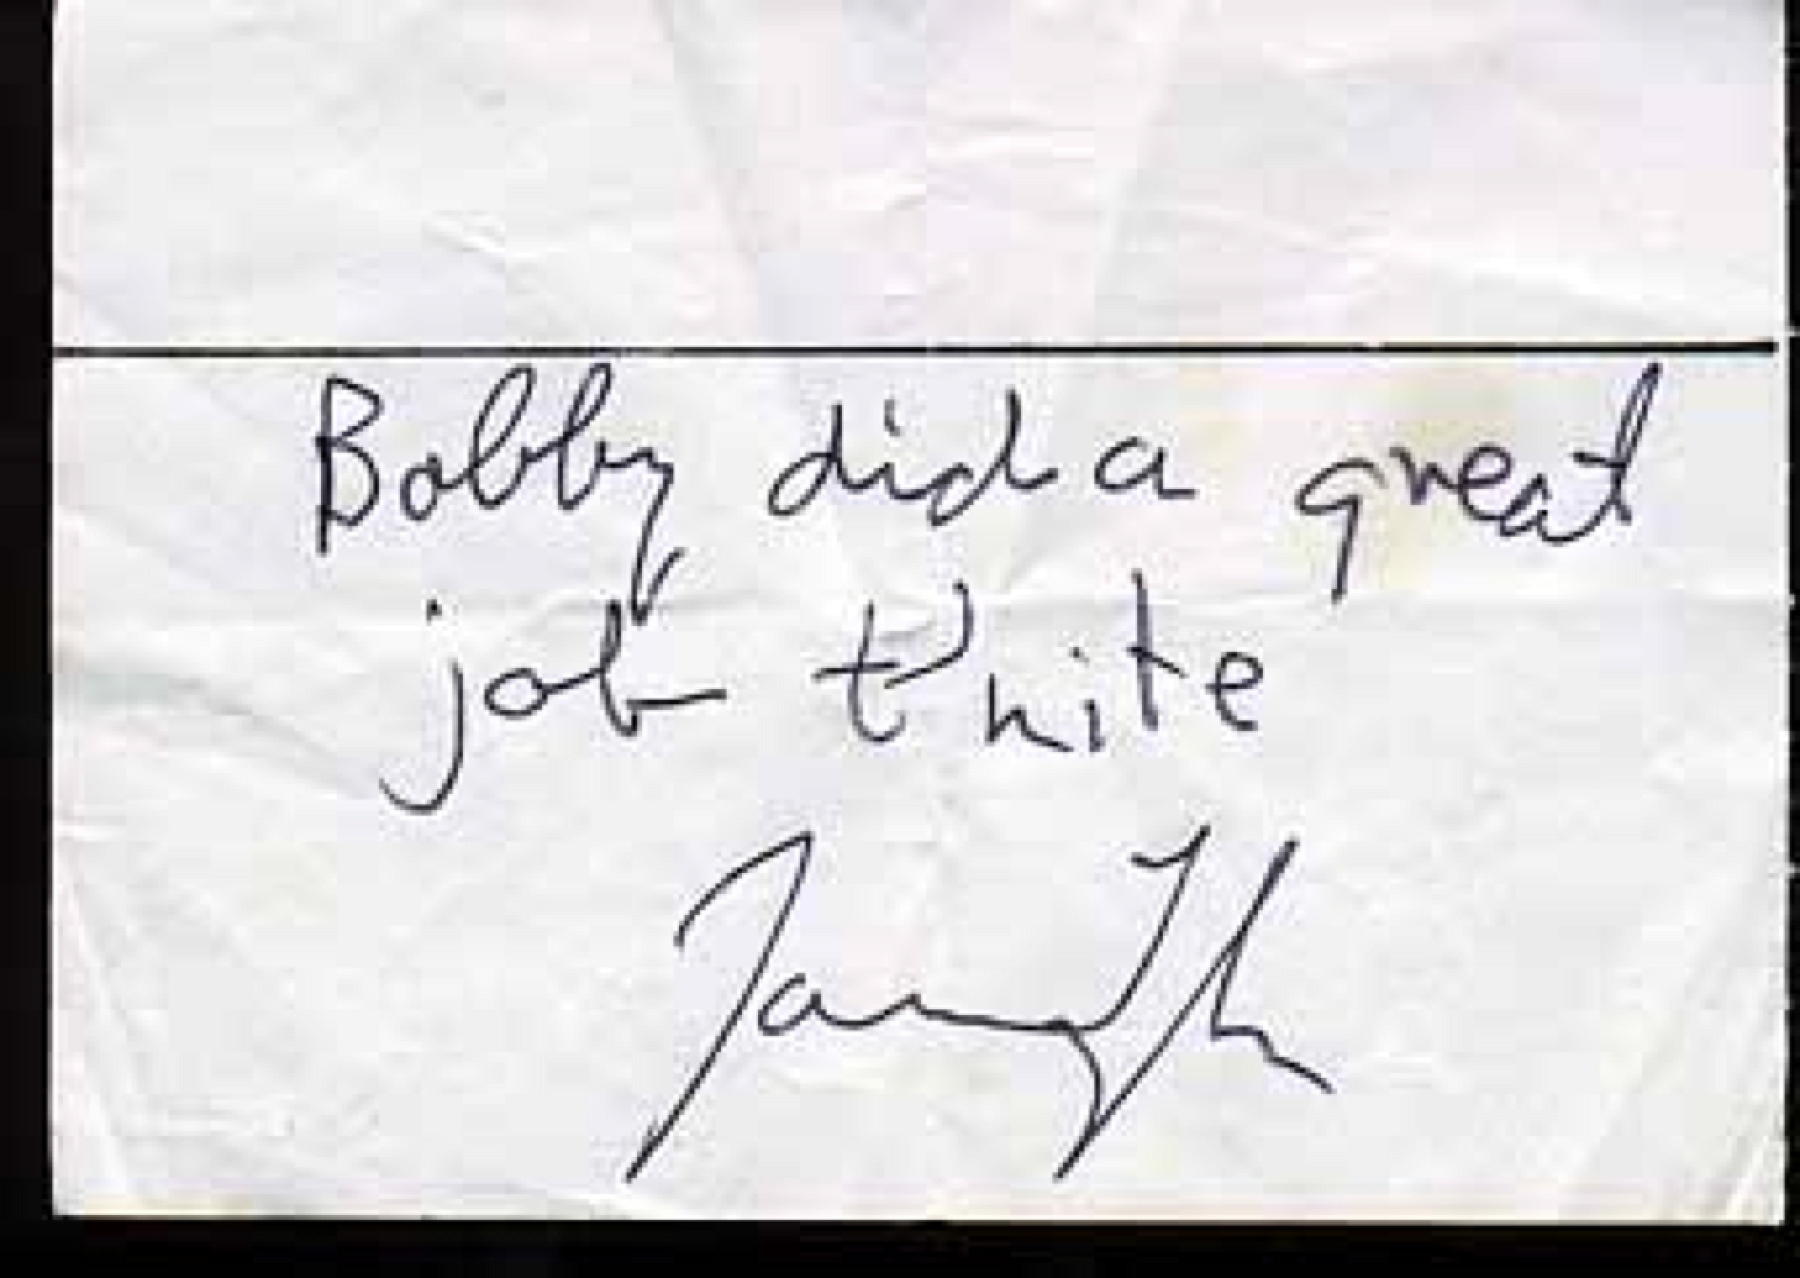 Bobby did a great
job t'nite